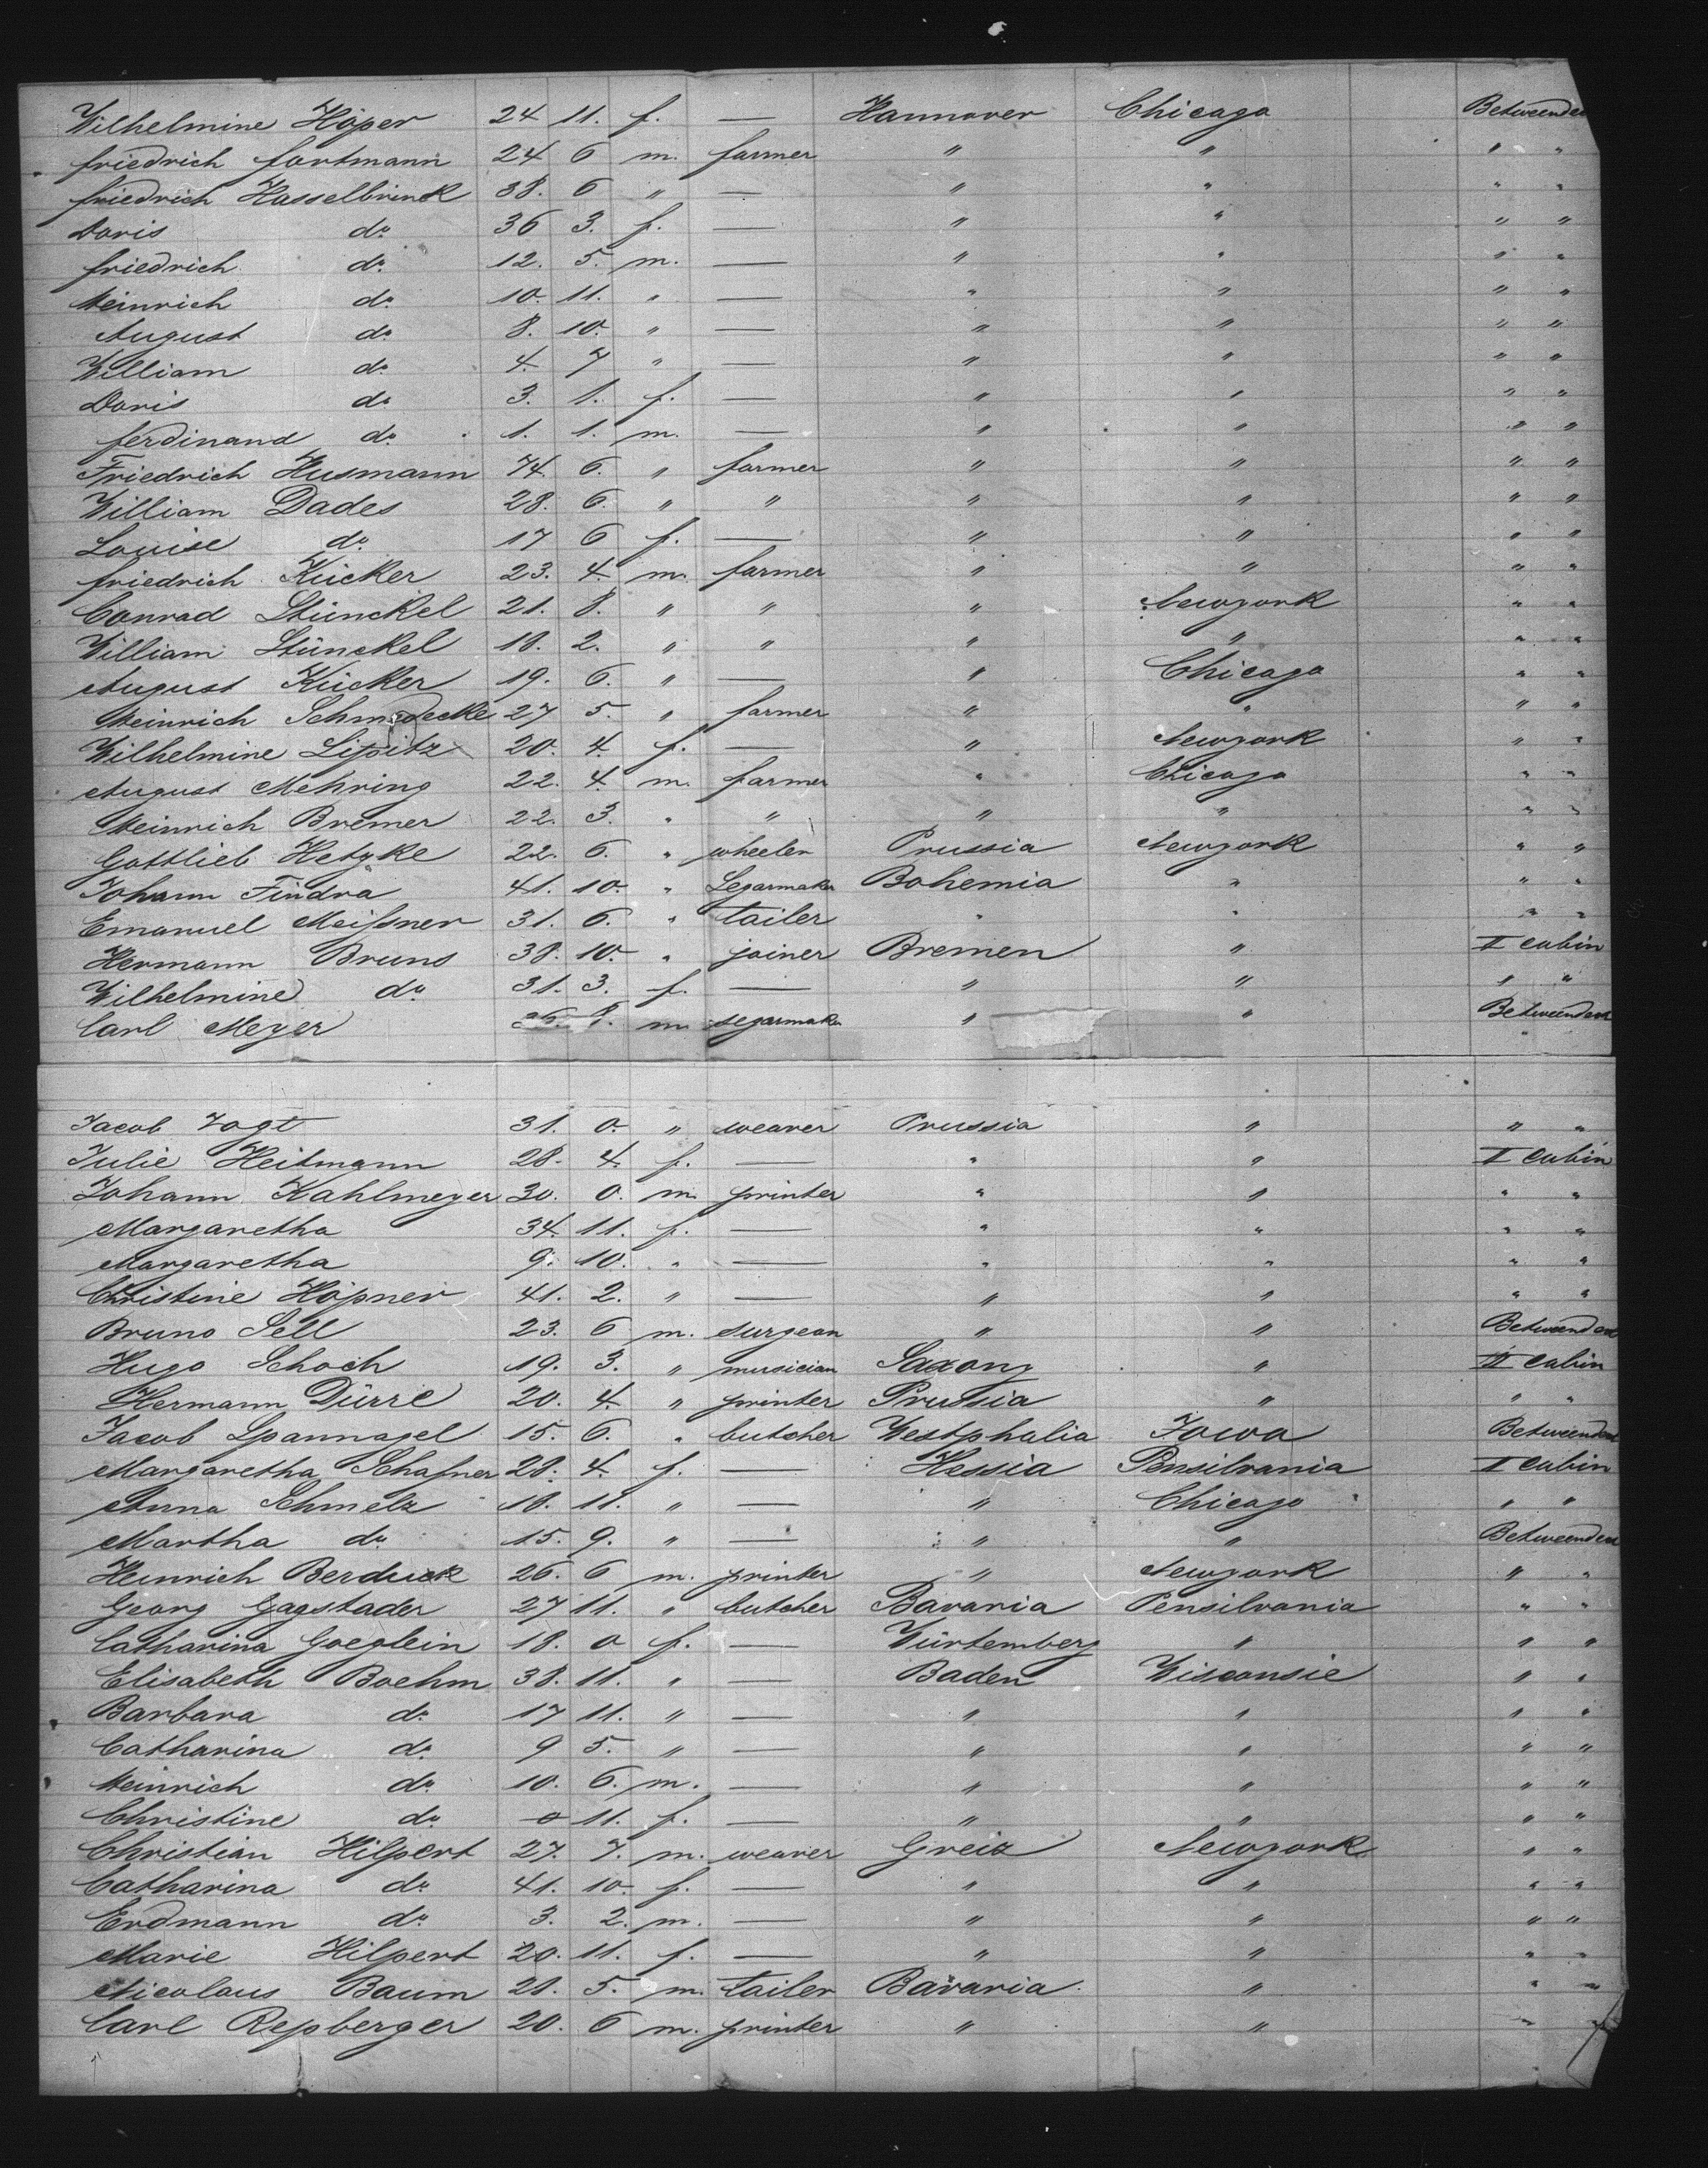 Wilhelmine Höper 24 11. f. — Hannover Chicago Betweendeck
friedrich fortmann 24 6 m. farmer " " " "
friedrich Hasselbrinck 38. 6 " — " " " "
Doris do 36 3. f. — " " " "
friedrich do 12. 5. m. — " " " "
Heinrich do 10. 11. " — " " " "
August do 8. 10. " — " " " "
William do 4. 7 " — " " " "
Doris do 3. 1. f. — " " " "
ferdinand do 1. 1. m. — " " " "
Friedrich Husmann 74. 6. " farmer " " " "
William Dades 28. 6. " " " " " "
Louise do 17 6 f. — " " " "
friedrich Kücker 23. 4. m. farmer " " " "
Conrad Stünckel 21. 8. " " " Newyork " "
William Stünckel 18. 2. " " " " " "
August Kücker 19. 6. " — " Chicago " "
Heinrich Schmedecke 27 5. " farmer " " " "
Wilhelmine Lipitz 20. 4. f. — " Newyork " "
August Mehring 22. 4. m. farmer " Chicago " "
Heinrich Bremer 22. 3. " " " " " "
Gottlieb Hetzke 22. 6. " wheeler Prussia Newyork " "
Johann Findra 41. 10. " Segarmaker Bohemia " " "
Emanuel Meißner 31. 6. " tailer " " " "
Hermann Bruns 38. 10. " joiner Bremen " II cabin
Wilhelmine do 31. 3. f. — " " " "
Carl Meyer m segarmaker " " Betweendeck
Jacob Vogt 31. 0. " weaver Prussia " " "
Julie Heitmann 28. 4. f. — " " II cabin
Johann Kahlmeyer 30. 0. m. printer " " " "
Margaretha 34. 11. f. — " " " "
Margaretha 9. 10. " — " " " "
Christine Höpner 41. 2. " — " " " "
Bruno Sell 23. 6 m. surgeon " " Betweendeck
Hugo Schoch 19. 3. " musician Saxony " II cabin
Hermann Dürre 20. 4. " printer Prussia " " "
Jacob Spannagel 15. 6. " butcher Westphalia Iowa Betweendeck
Margaretha Schafner 28. 4. f. — Hessia Pensilvania II cabin
Anna Schmelz 18. 11. " — " Chicago " "
Martha do 15. 9. " — " " Betweendeck
Heinrich 26. 6 m. printer " Newyork " "
Georg Gagstader 27 11. " butcher Bavaria Pensilvania " "
Catharina Goeglein 18. 0 f. — Würtemberg " " "
Elisabeth Boehm 38. 11. " — Baden Wisconsie " "
Barbara do 17 11. " — " " " "
Catharina do 9 5. " — " " " "
Heinrich do 10. 6. m. — " " " "
Christine do 0 11. f. — " " " "
Christian Hilpert 27. 7. m. weaver Greiz Newyork " "
Catharina do 41. 10. f. — " " " "
Erdmann do 3. 2. m. — " " " "
Marie Hilpert 20. 11. f. — " " " "
Nicolaus Baum 21. 5. m. tailer Bavaria " " "
Carl Repberger 20. 6 m. printer " " " "